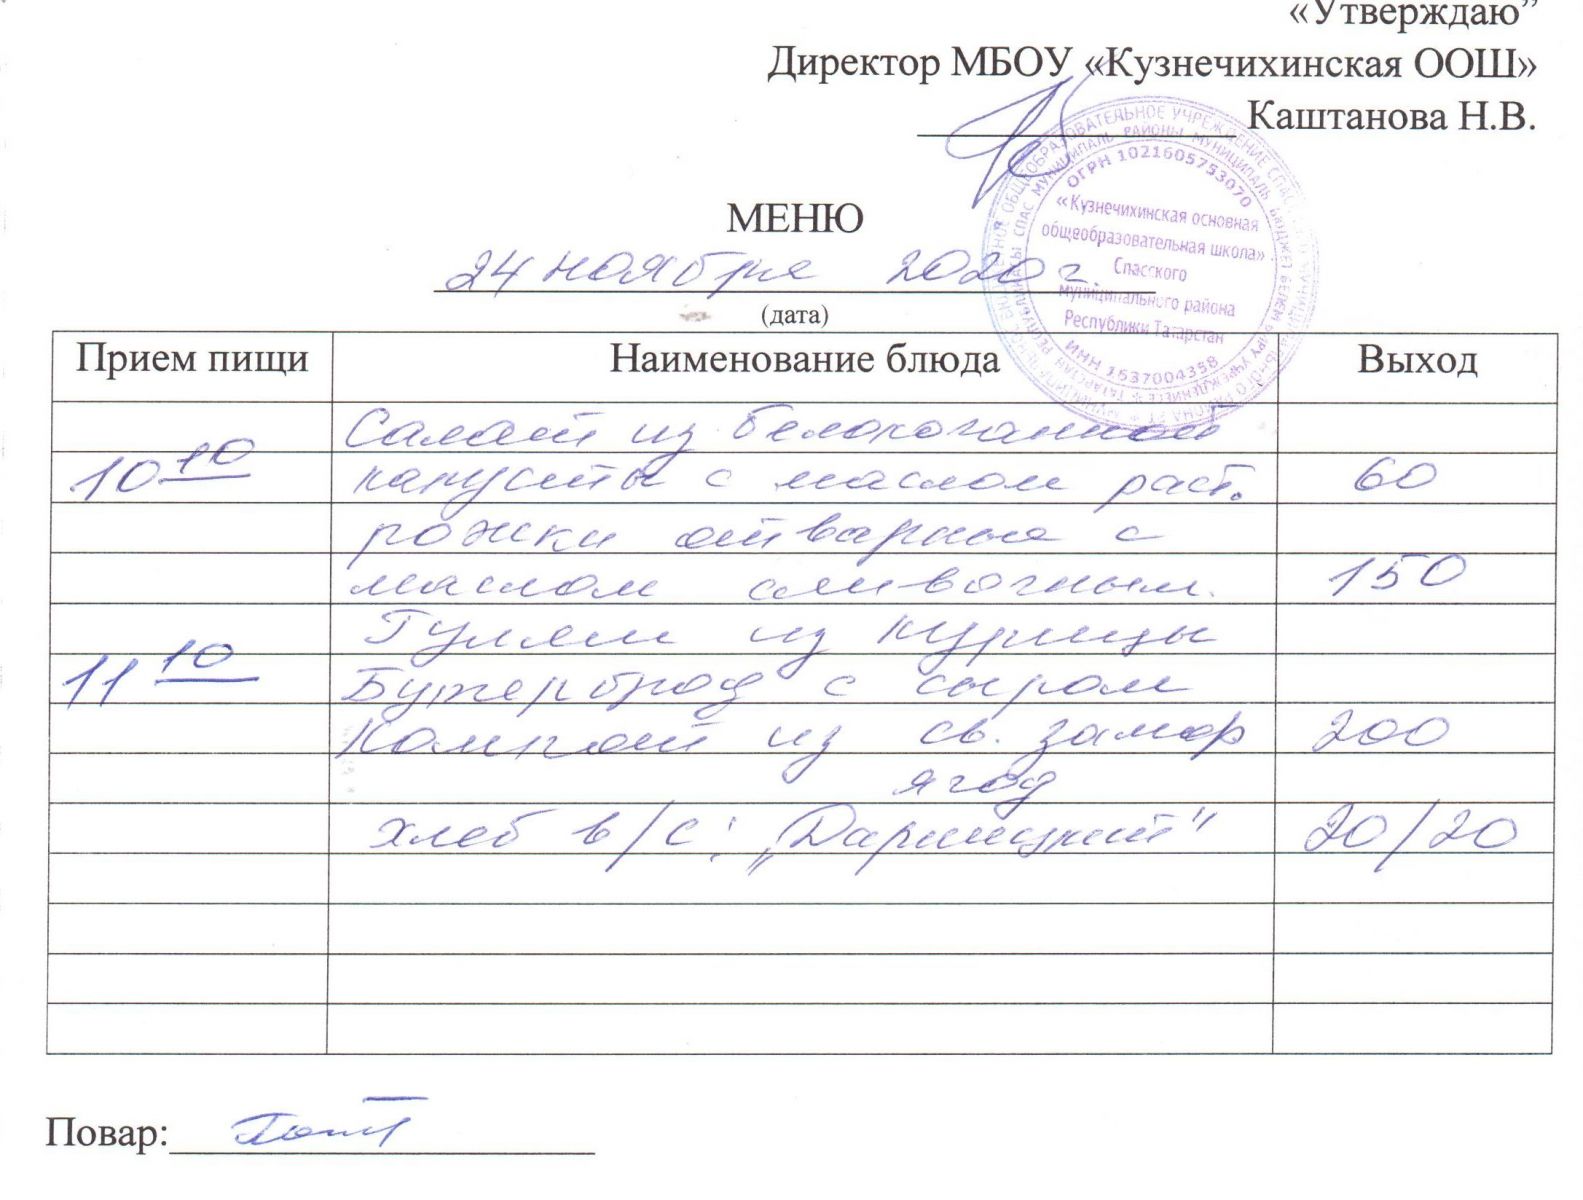 «Утверждаю”
Директор МБОУ «Кузнечихинская ООШ»
Каштанова Н.В.
ОГРН 1021605753070
«Кузнечихинская основная
общеобразовательная школа»
Спасского
муниципального района
Республики Татарстан
ИНН 1637004358
МЕНЮ
24 ноября 2020 г.
(дата)
Прием пищи Наименование блюда Выход
Салат из белокочанной
10 10 капусты с маслом раст. 60
рожки отварные с
маслом сливочным. 150
Гуляш из курицы
11 10 Бутерброд с сыром
Компот из св. замор 200
ягод
хлеб в/с; „Дарницкий" 20/20
Повар: